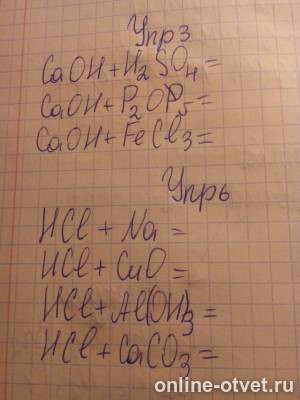 Упр3
CaOH+H₂SO₄=
CaOH+P₂OP₅=
CaOH+FeCl₃=
Упр6
HCl+Na=
HCl+CuO=
HCl+Al(OH)₃=
HCl+CaCO₃=
online-otvet.ru